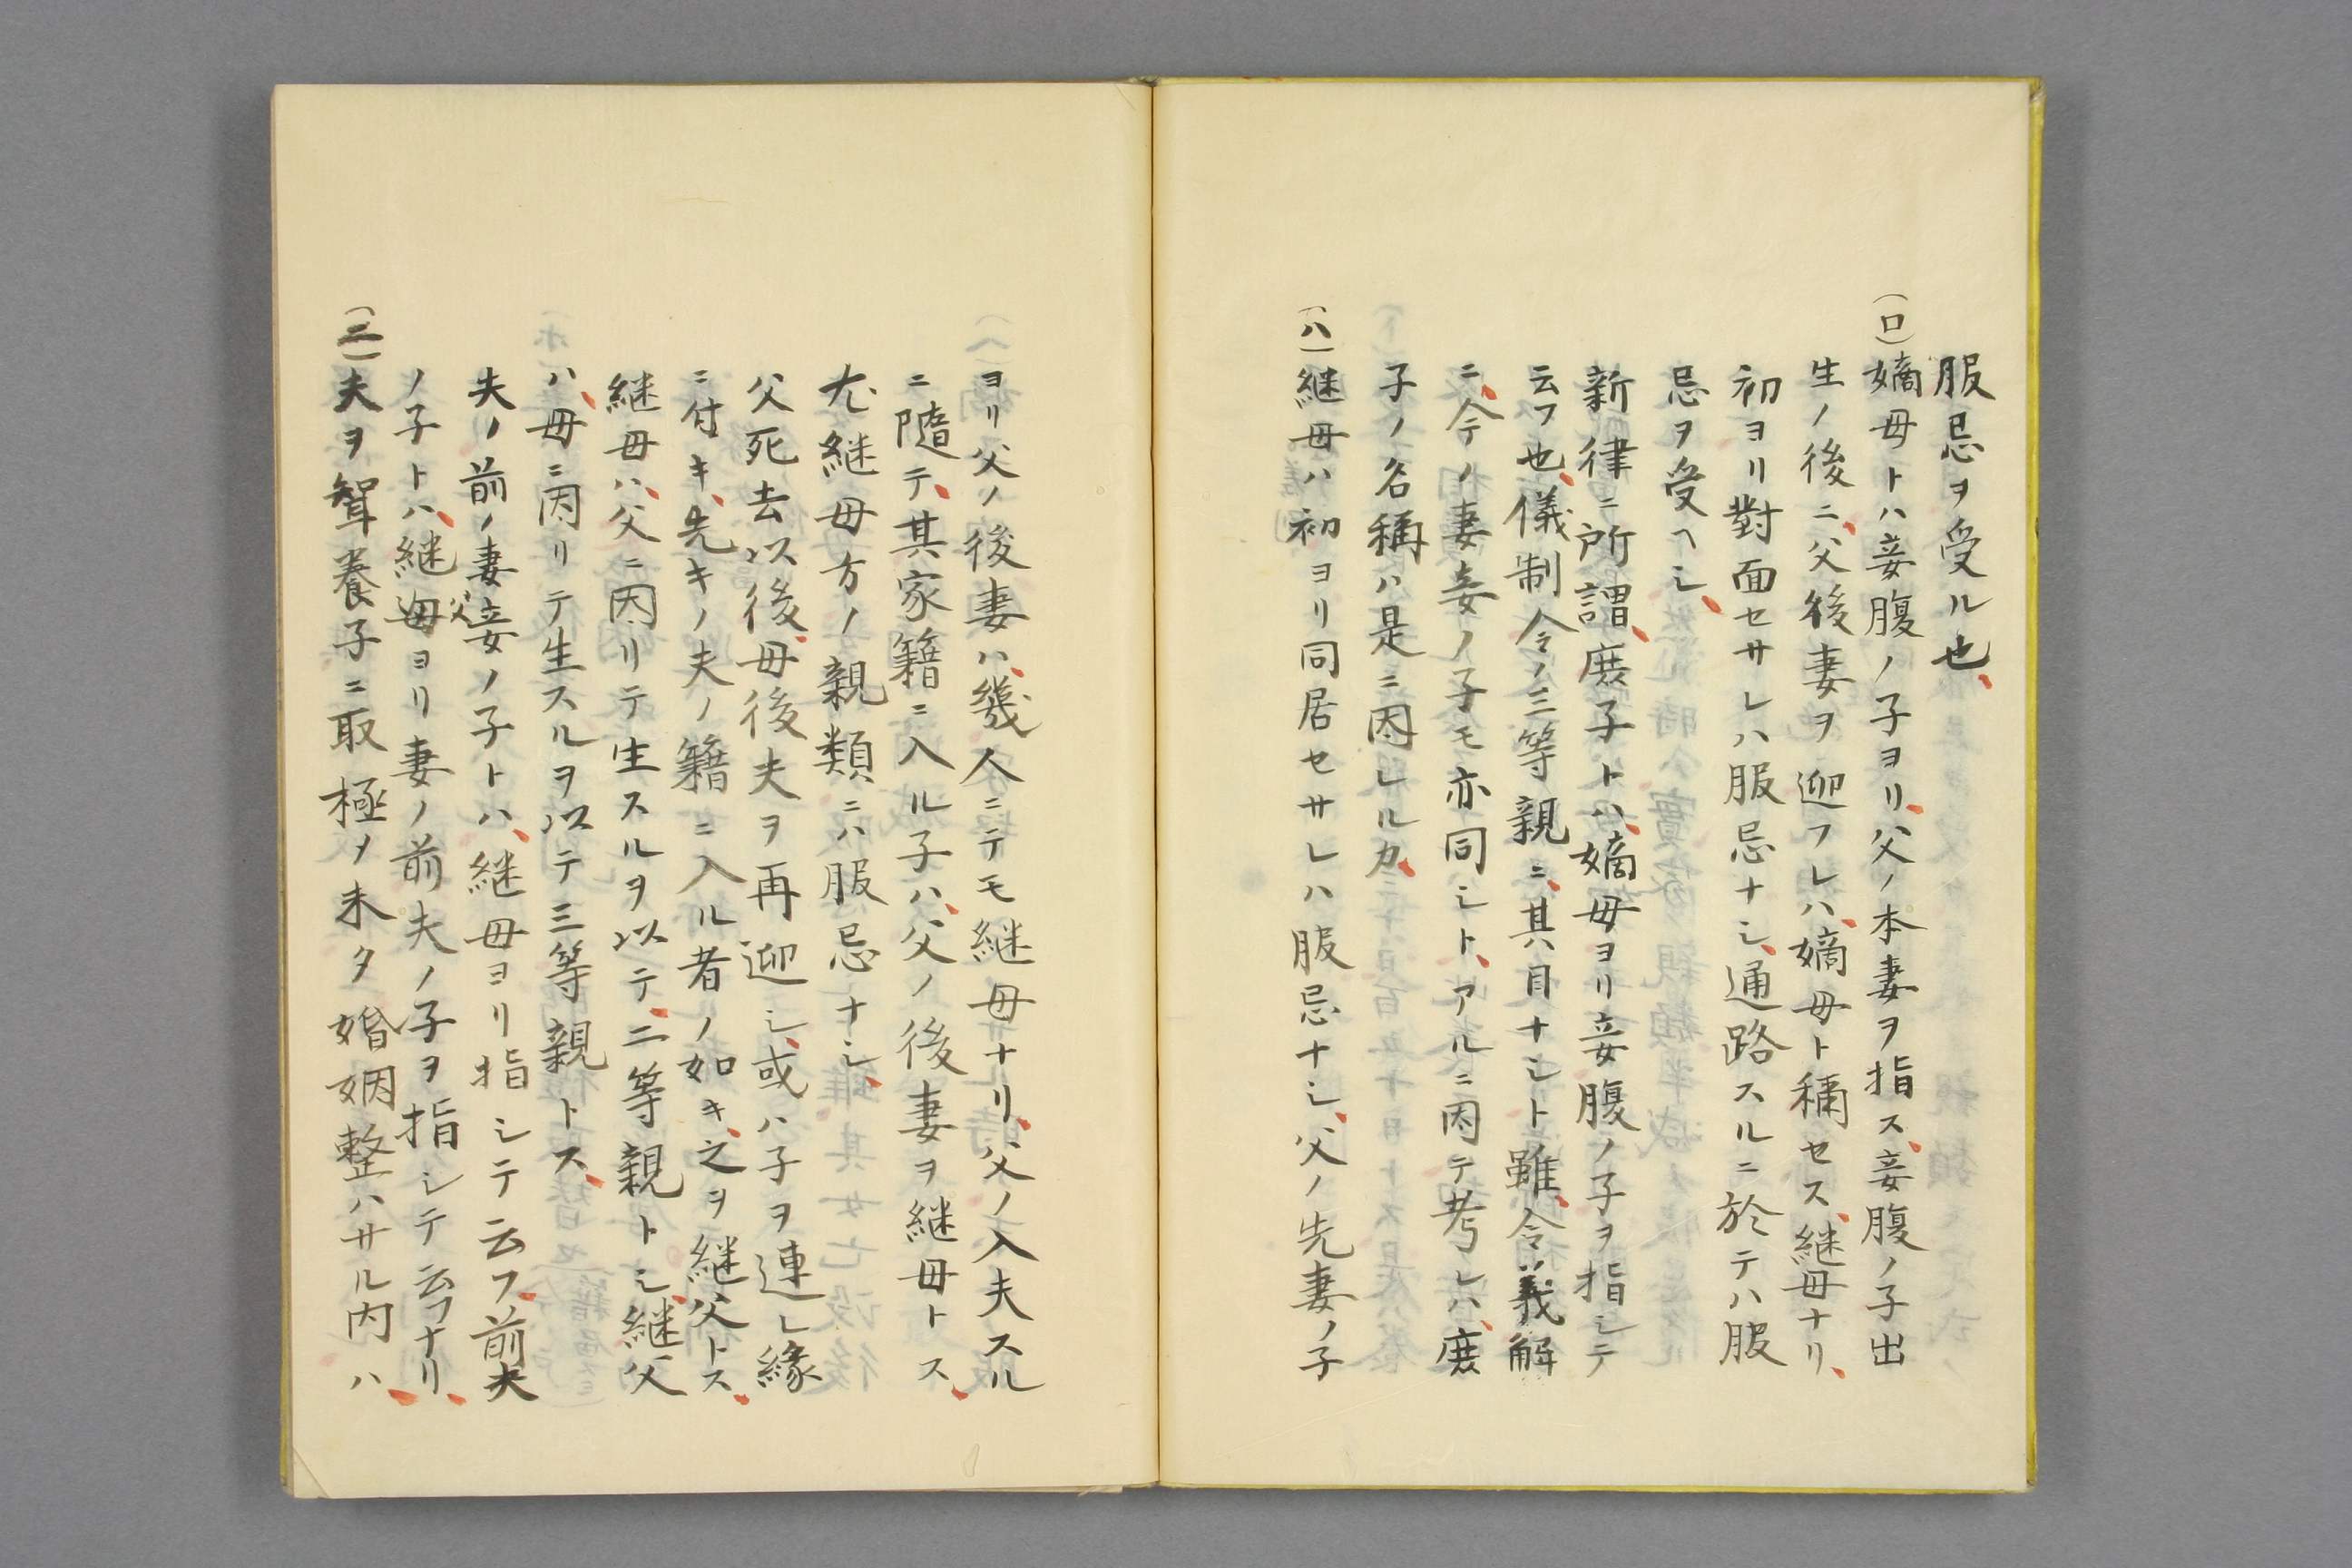 服忌ヲ受ル也、
(ロ)嫡母トハ妾腹ノ子ヨリ、父ノ本妻ヲ指ス、妾腹ノ子出
生ノ後ニ、父後妻ヲ迎フレハ、嫡母ト稱セス、継母ナリ、
初ヨリ對面セサレハ服忌ナシ、通路スルニ於テハ服
忌ヲ受ヘシ、
新律ニ所謂、庶子トハ、嫡母ヨリ妾腹ノ子ヲ指シテ
云フ也、儀制令ノ三等親ニ、其目ナシト雖、令義解
ニ、今ノ妻妾ノ子モ亦同シト、アルニ因テ考レハ、庶
子ノ名稱ハ是ニ因レルカ、
(ハ)継母ハ初ヨリ同居セサレハ服忌ナシ、父ノ先妻ノ子
ヨリ父ノ後妻ハ、幾人ニテモ継母ナリ、父ノ入夫スル
ニ隨テ、其家籍ニ入ル子ハ、父ノ後妻ヲ継母トス、
尤継母方ノ親類ニハ服忌ナシ、
父死去以後、母後夫ヲ再迎シ、或ハ子ヲ連レ縁
ニ付キ、先キノ夫ノ籍ニ入ル者ノ如キ、之ヲ継父トス、
継母ハ、父ニ因リテ生スルヲ以テ、二等親トシ、継父
ハ、母ニ因リテ生スルヲ以テ三等親トス、
夫ノ前ノ妻妾ノ子トハ、継母ヨリ指シテ云フ、前夫
ノ子トハ、継父ヨリ妻ノ前夫ノ子ヲ指シテ云フナリ、
(ニ)夫ヲ聟養子ニ取極メ未タ婚姻整ハサル内ハ、